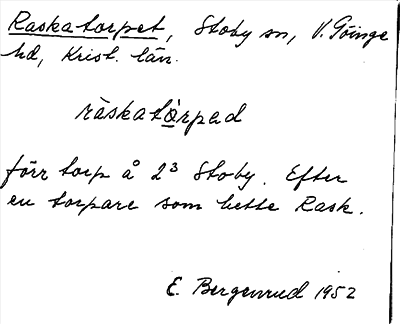 Raskatorpet, Stoby sn, V. Göinge
hd, Krist. län.
ràskatòrpəd
förr torp å 2³ Stoby. Efter
en torpare som hette Rask.
E. Bergenrud 1952